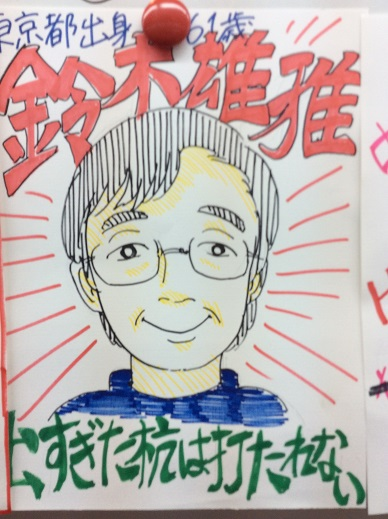 東京都出身 61歳
鈴木雄雅
出すぎた杭は打たれない